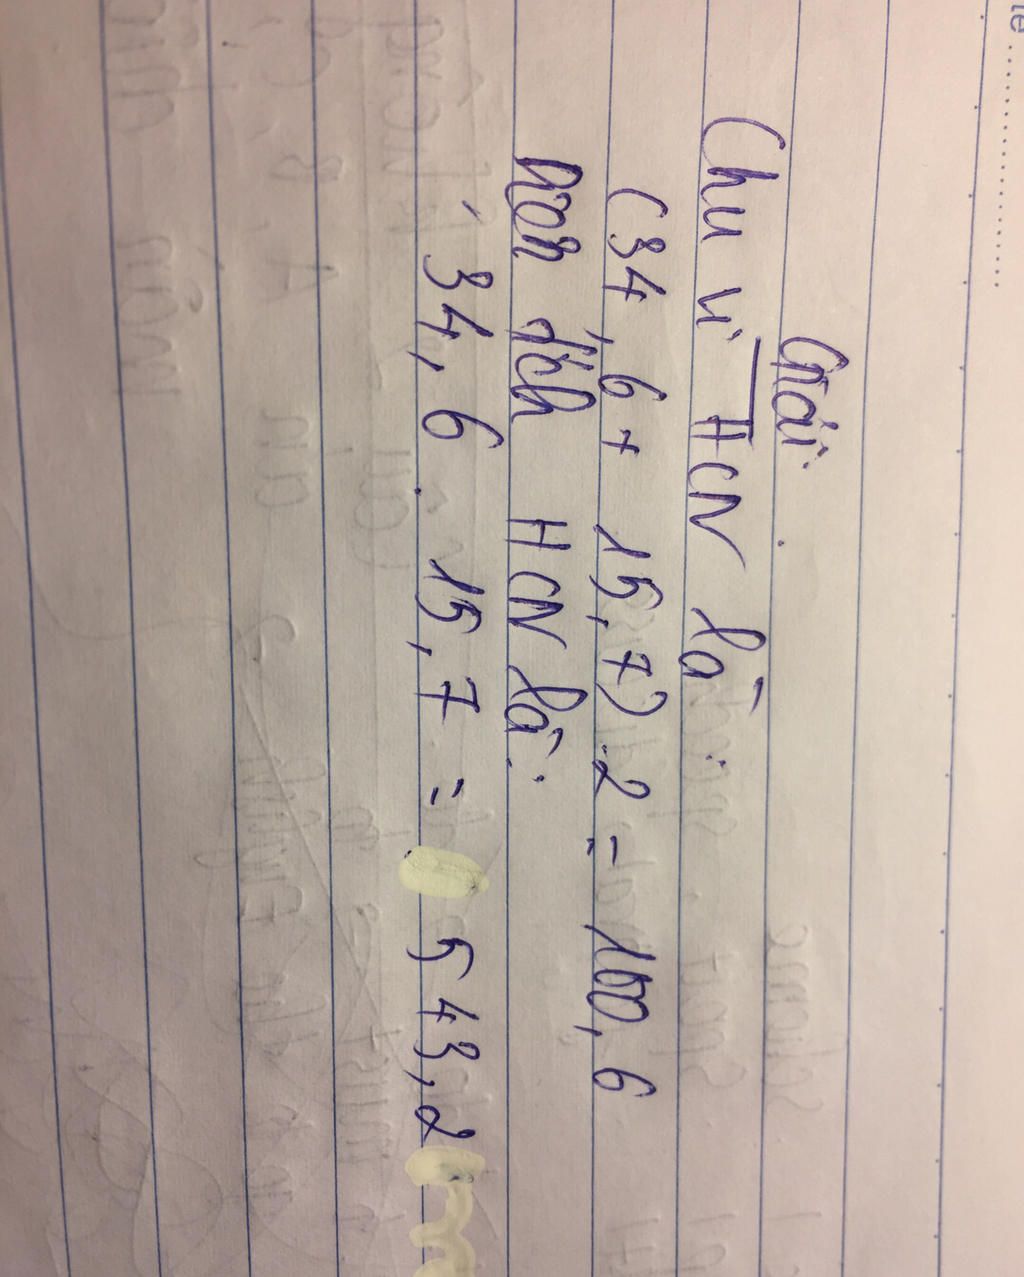 Giải:
Chu vi HCN là
(34,6 + 15,7) . 2 = 100,6
Diện tích HCN là:
34,6 . 15,7 = 543,2